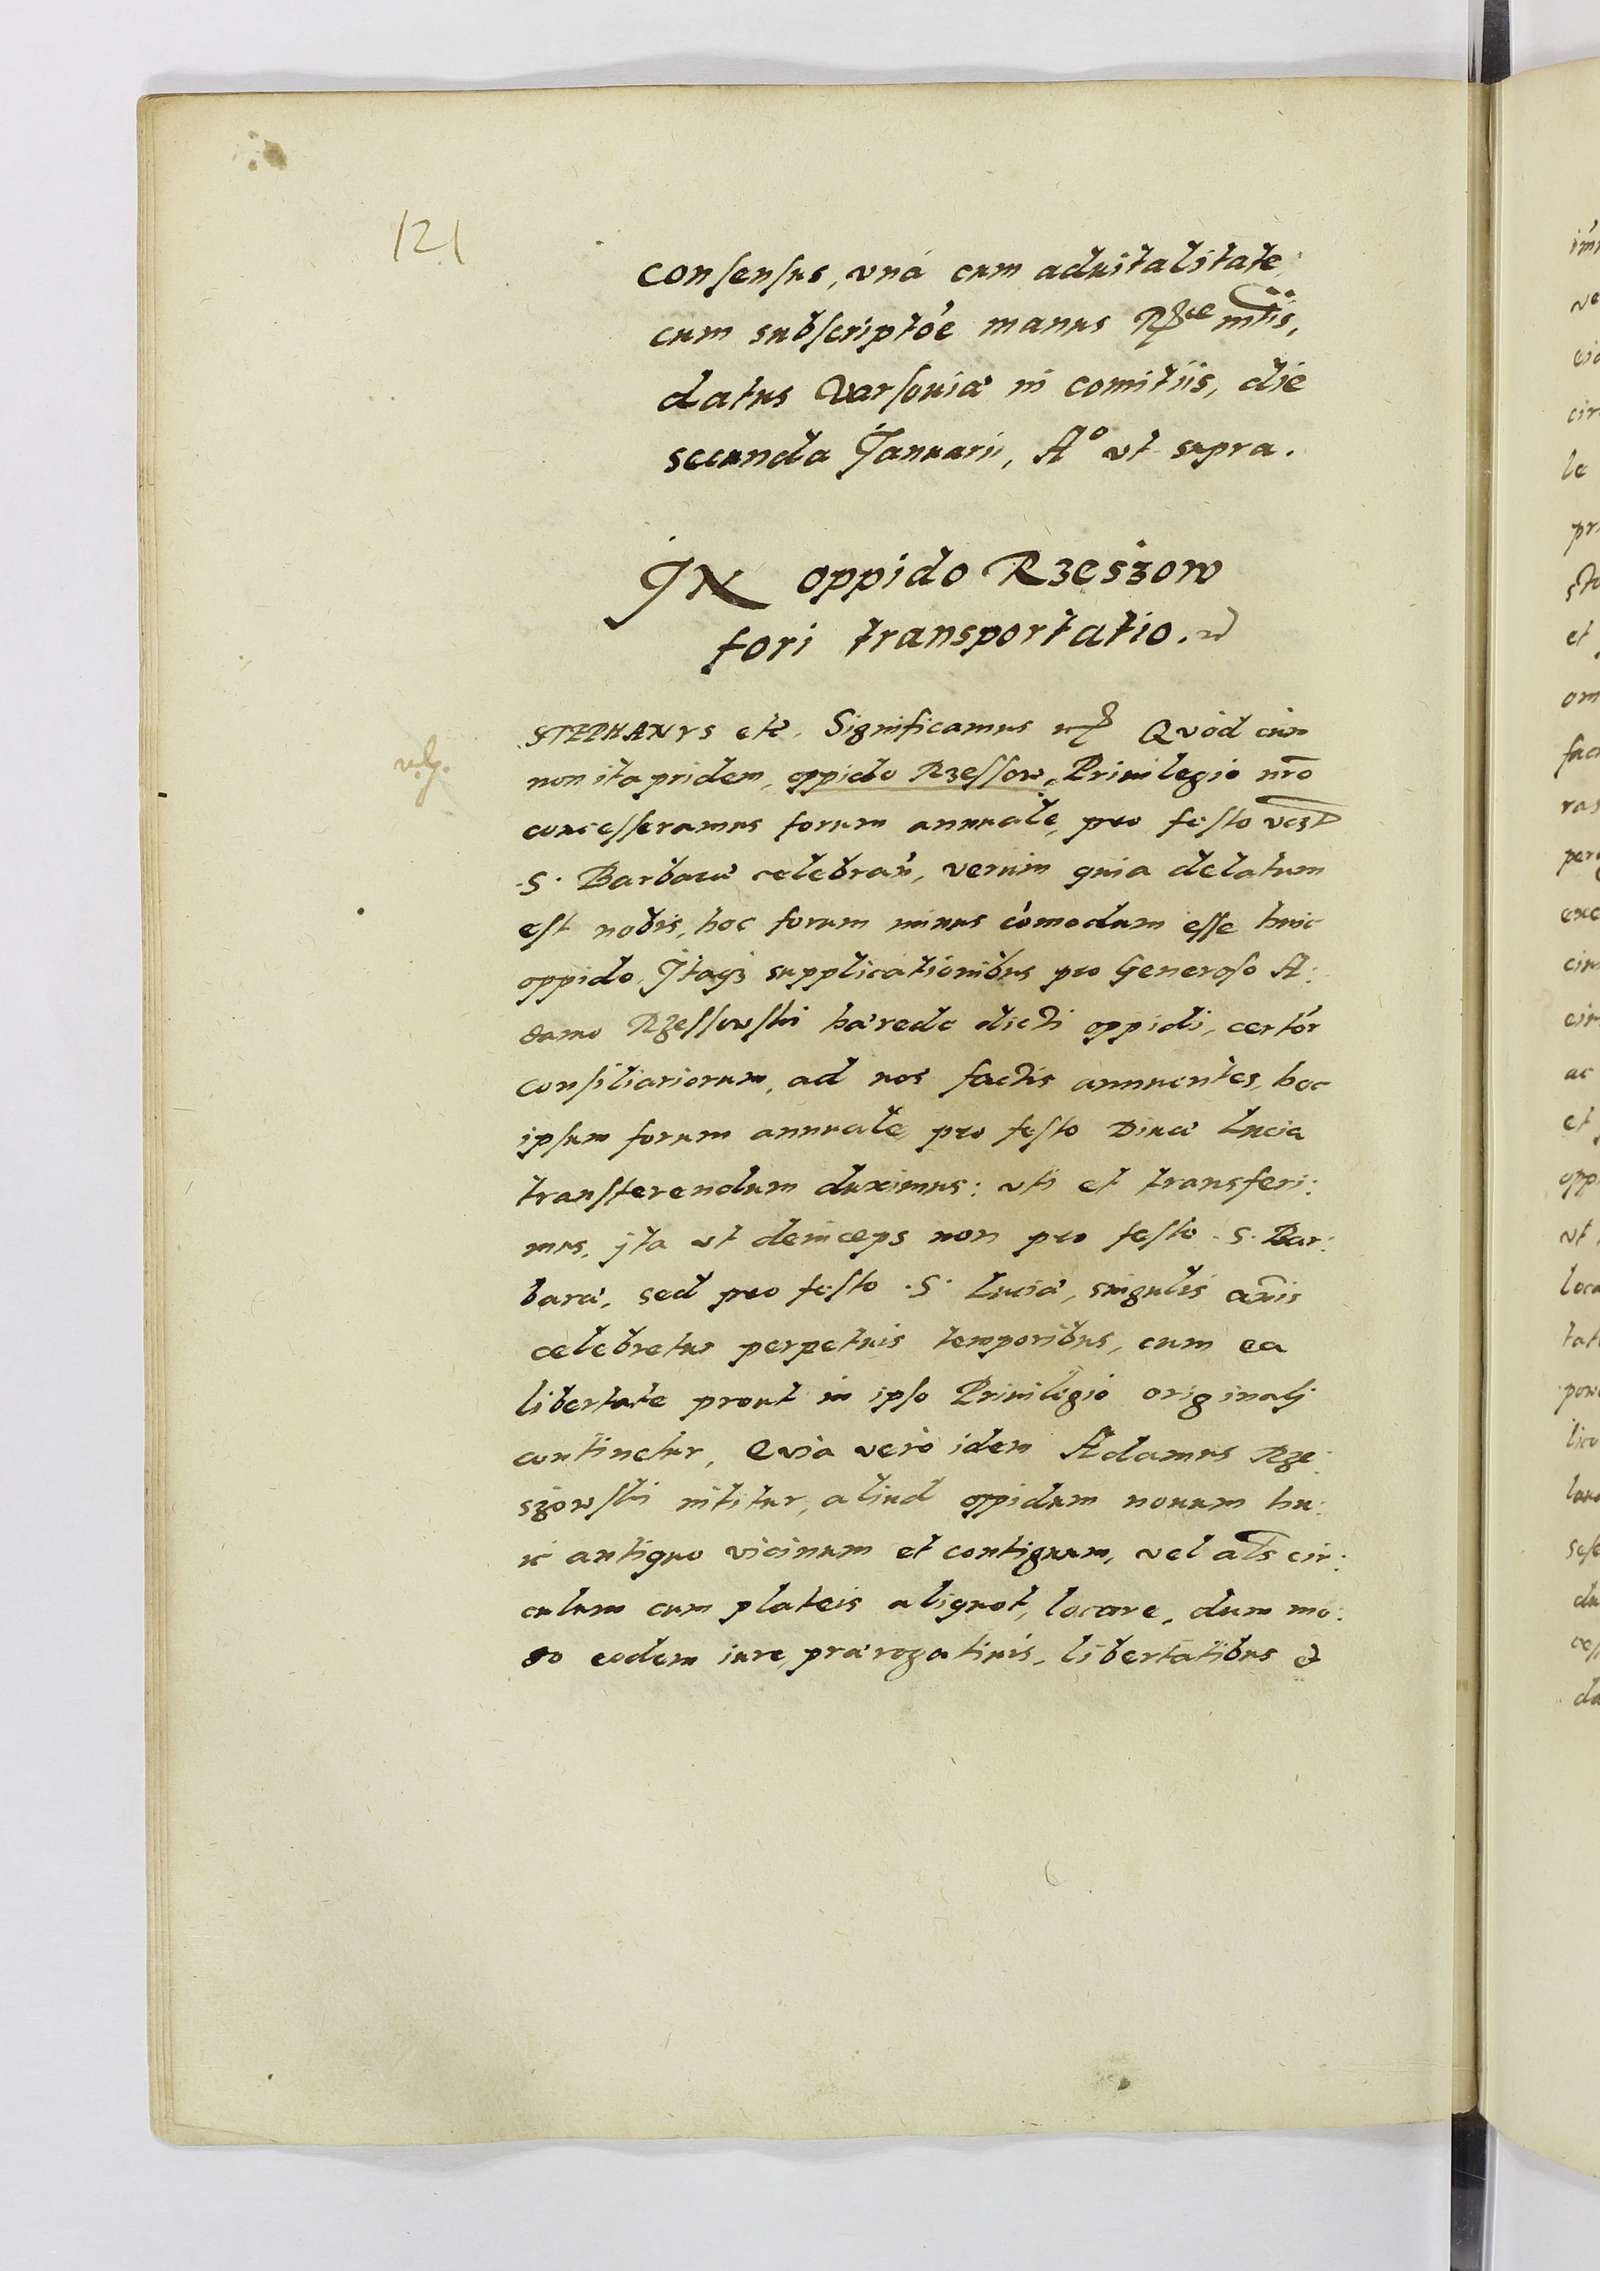 121
consensus, vná cum aduitalitate
cum subscriptóe manus Rgie mtis,
datus Varsouiæ in comitiis, die
secunda Januarii, A° vt supra.
JN oppido Rzeszow
fori transportatio.
STEPHANVS etc. Significamus Quód cum
non ita pridem, oppido Rzessow, Priuilegio nro
concesseramus forum annuale, pro festo
S. Barbaræ celebran, verum quia delatum
est nobis, hoc forum minus comodum esse huic
oppido, Jtaqz supplicationibus pro Generoso A:
damo Rzessowski hærede dicti oppidi, certor
consiliariorum, ad nos factis annuentes, hoc
ipsum forum annuale, pro festo Diuæ Lucia
transferendum duximus: vti et transferi:
mus, jta vt deinceps non pro festo S. Bar:
baræ, sed pro festo S. Luciæ, singulis anis
celebretur perpetuis temporibus, cum ea
libertate prout in ipso Priuilegio originalj
continetur, Qvia veró idem Adamus Rze:
szowski nititur, aliud oppidum nouum hu:
ic antiquo vicinum et contiguum, vel als cir:
culum cum plateis aliquot, locare, dum mo:
do eodem iure, prærogatiuis, libertatibus et